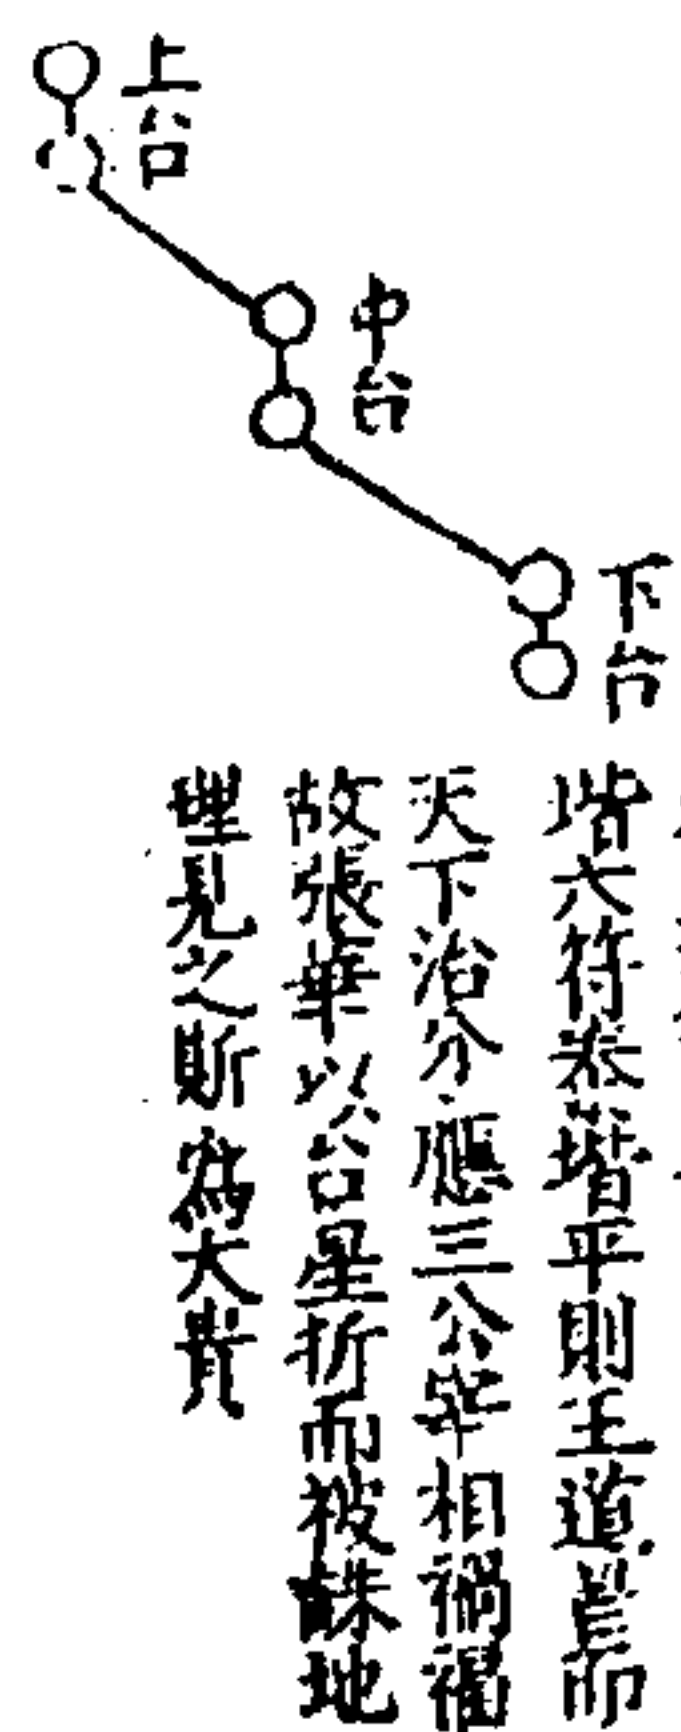 上台
中台
下台
堦六符泰堦平則王道昌而
天下治分應三公宰相禍福
故張華以台星折而被誅地
理見之斯爲大貴